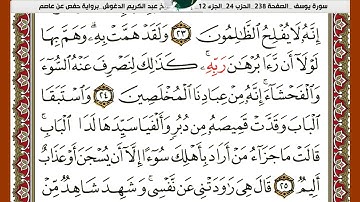 سورة يوسف _ الصفحة 238_ الحزب 24_ الجزء 12_ خ عبد الكريم الدغوش_ برواية حفص عن عاصم
إِنَّهُۥ لَا يُفْلِحُ ٱلظَّٰلِمُونَ ٢٣ وَلَقَدْ هَمَّتْ بِهِۦ وَهَمَّ بِهَا
لَوْلَآ أَن رَّءَا بُرْهَٰنَ رَبِّهِۦ كَذَٰلِكَ لِنَصْرِفَ عَنْهُ ٱلسُّوٓءَ
وَٱلْفَحْشَآءَ إِنَّهُۥ مِنْ عِبَادِنَا ٱلْمُخْلَصِينَ ٢٤ وَٱسْتَبَقَا
ٱلْبَابَ وَقَدَّتْ قَمِيصَهُۥ مِن دُبُرٍ وَأَلْفَيَا سَيِّدَهَا لَدَا ٱلْبَابِ
قَالَتْ مَا جَزَآءُ مَنْ أَرَادَ بِأَهْلِكَ سُوٓءًا إِلَّآ أَن يُسْجَنَ أَوْ عَذَابٌ
أَلِيمٌ ٢٥ قَالَ هِىَ رَٰوَدَتْنِى عَن نَّفْسِى وَشَهِدَ شَاهِدٌ مِّنْ